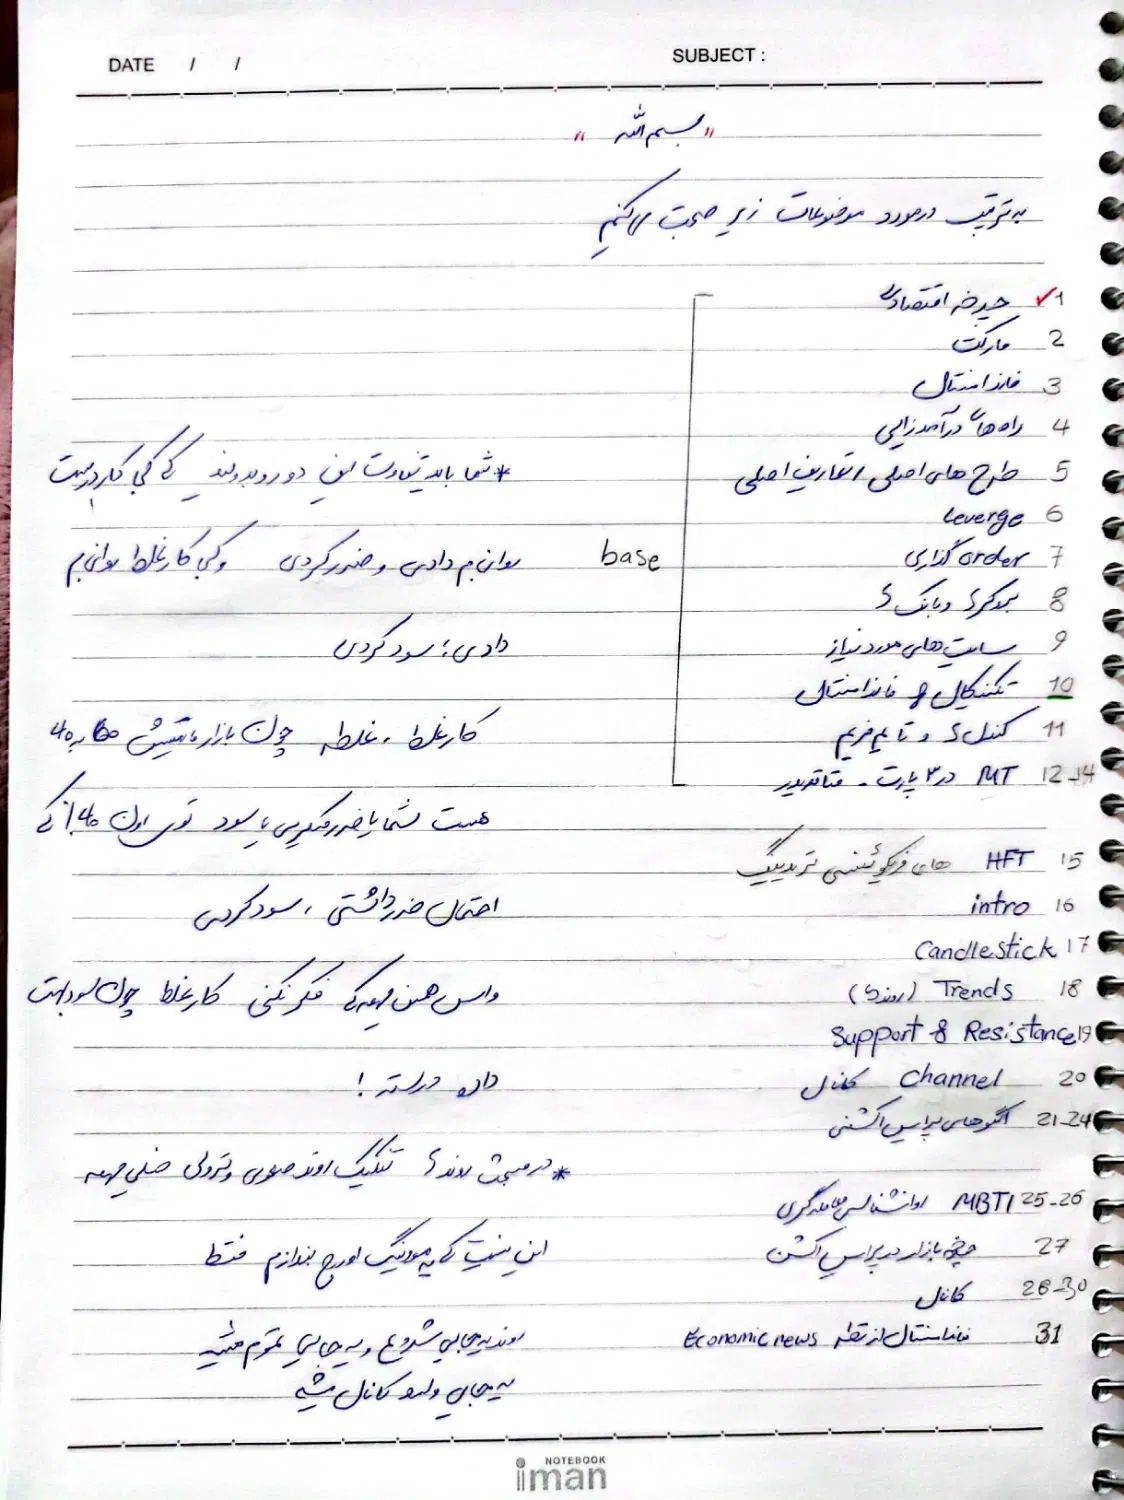 DATE / /
SUBJECT :
"بسم الله"
به ترتیب درمورد موضوعات زیر صحبت می‌کنیم
✓ 1 چرخه اقتصادی
2 مارکت
3 فاندامنتال
4 راه‌های درآمدزایی
5 طرح های اصلی / تعاریف اصلی
6 Leverge
7 order گذاری
8 بروکرها و بانک‌ها
9 سایت‌های مورد نیاز
10 تکنیکال و فاندامنتال
11 کندل‌ها و تایم فریم
12-14 MT در ۳ پارت - متاتریدر
base
15 HFT های فریکوئنسی تریدینگ
16 intro
17 Candlestick
18 Trends (روندها)
19 Support & Resistance
20 Channel کانال
21-24 الگوهای پرایس اکشنی
25-26 MBTI روانشناسی معامله‌گری
27 چرخه بازار در پرایس اکشن
28-30 کانال
31 فاندامنتال از نقطه Economic news
* شما باید تفاوت این دو رو بدونید که کی کار درست
رو انجام دادی و ضرر کردی و کی کار غلط رو انجام
دادی، سود کردی
کار غلط، غلطه چون بازار ماهیتش 60 به 40
هست شما یا ضرر میکنی یا سود توی اون 40% که
احتمال ضرر داشتی، سود کردی
واسه همین مهمه که فکر نکنی کار غلط چون سود بهت
داده درسته !
* در مبحث روندها تکنیک روند صعودی و نزولی خیلی مهمه
این نیست که یه مووینگ اورج بندازم فقط
روند یه جایی شروع و یه جایی تموم میشه
یه جایی وارد کانال میشه
NOTEBOOK
iman